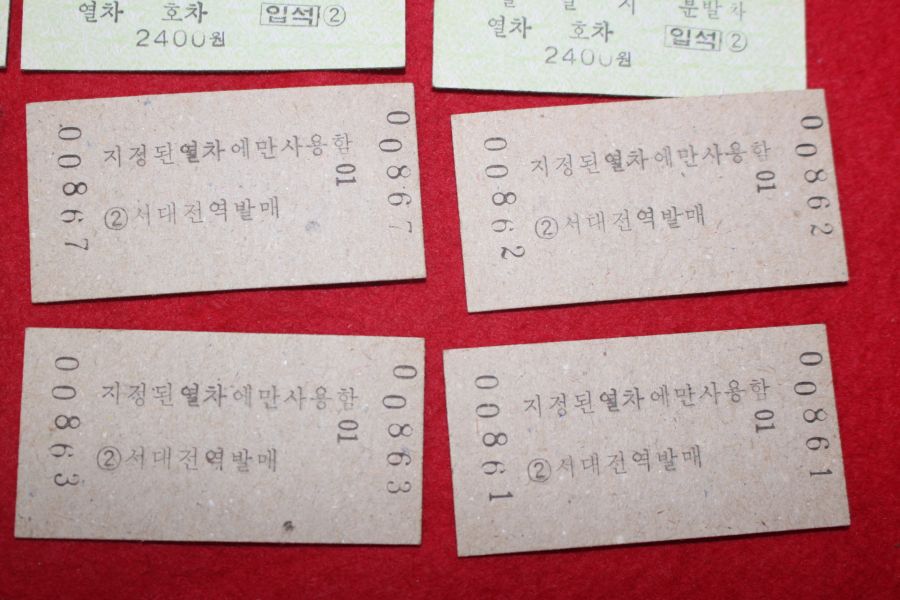 열차 호차 입석 ②
2400원
일 시 분발차
열차 호차 입석 ②
2400원
00867
지정된 열차에만 사용함
01
②서대전역발매
00867
00862
지정된 열차에만 사용함
01
②서대전역발매
00862
00863
지정된 열차에만 사용함
01
②서대전역발매
00863
00861
지정된 열차에만 사용함
01
②서대전역발매
00861